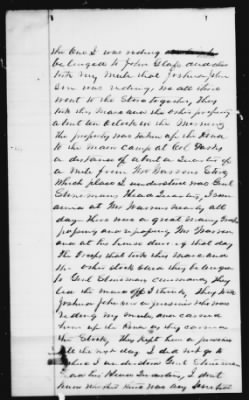 the One I was riding
belonged to John Glass and she
took my mule that Joshua John
son was riding. So all three
went to the Store together, they
took this Mare and the other property
about ten o'clock in the Morning
the property was taken up the Road
to the Main Camp at Col
a distance of about a Quarter of
a mile from Mr Warrens Store
Which place I understood was Genl
Stoneman's Head Quarters. I re-
mained at Mr Warrens nearly all
day. There were a great many troops
passing and repassing Mr Warrens
and at his house during that day
the troops that took this Mare and
the other stock said they belonged
to Genl Stoneman command, they
led the Mare off I think. They took
Joshua Johnson a prisoner who was
riding my mule, and carried
him up the Road as they carried
the Stock, they kept him a prisoner
till the next day. I did not go to
where I understood Genl Stoneman
had his Head Quarters, I dont
know